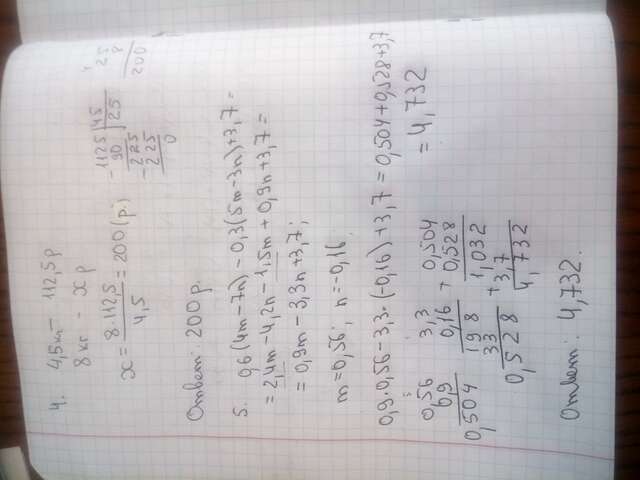 4. 4,5 кг – 112,5 р
8 кг – x р
x = 8·112,5 / 4,5 = 200 (р.)
- 1125 | 45
90 | 25
- 225
225
0
4
25
8
200
Ответ: 200 р.
5. 0,6(4m-7n)-0,3(5m-3n)+3,7=
=2,4m-4,2n-1,5m+0,9n+3,7=
=0,9m-3,3n+3,7;
m=0,56; n=-0,16.
0,9·0,56-3,3·(-0,16)+3,7=0,504+0,528+3,7
=4,732
0,56
0,9
0,504
3,3
0,16
198
33
0,528
+ 0,504
0,528
1,032
+ 3,7
4,732
Ответ: 4,732.